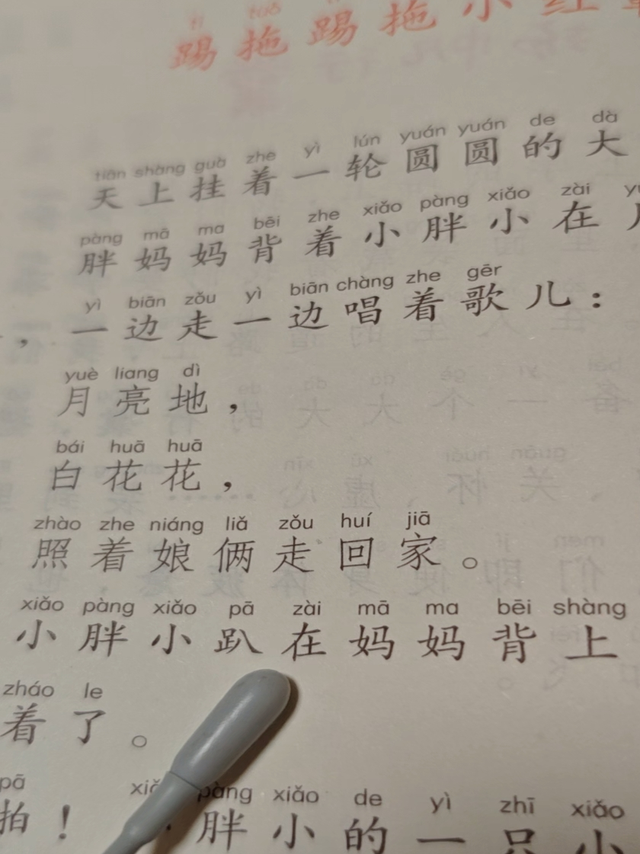 踢拖踢拖小红
tiān shàng guà zhe yì lún yuán yuán de dà
天上挂着一轮圆圆的大
pàng mā ma bēi zhe xiǎo pàng xiǎo zài
胖妈妈背着小胖小在
yì biān zǒu yì biān chàng zhe gēr
，一边走一边唱着歌儿：
yuè liang dì
月亮地，
bái huā huā
白花花，
zhào zhe niáng liǎ zǒu huí jiā
照着娘俩走回家。
xiǎo pàng xiǎo pā zài mā ma bēi shàng
小胖小趴在妈妈背上
zháo le
着了。
pā pàng xiǎo de yì zhī xiǎo
拍！胖小的一只小